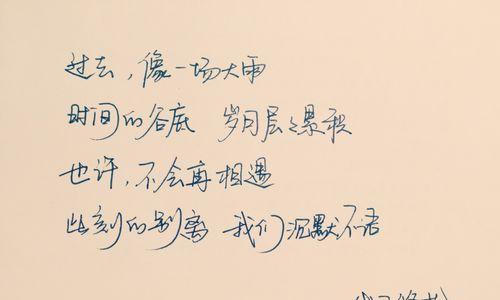 过去，像一场大雨
时间的谷底 岁月层层累积
也许，不会再相遇
此刻的别离 我们沉默不语